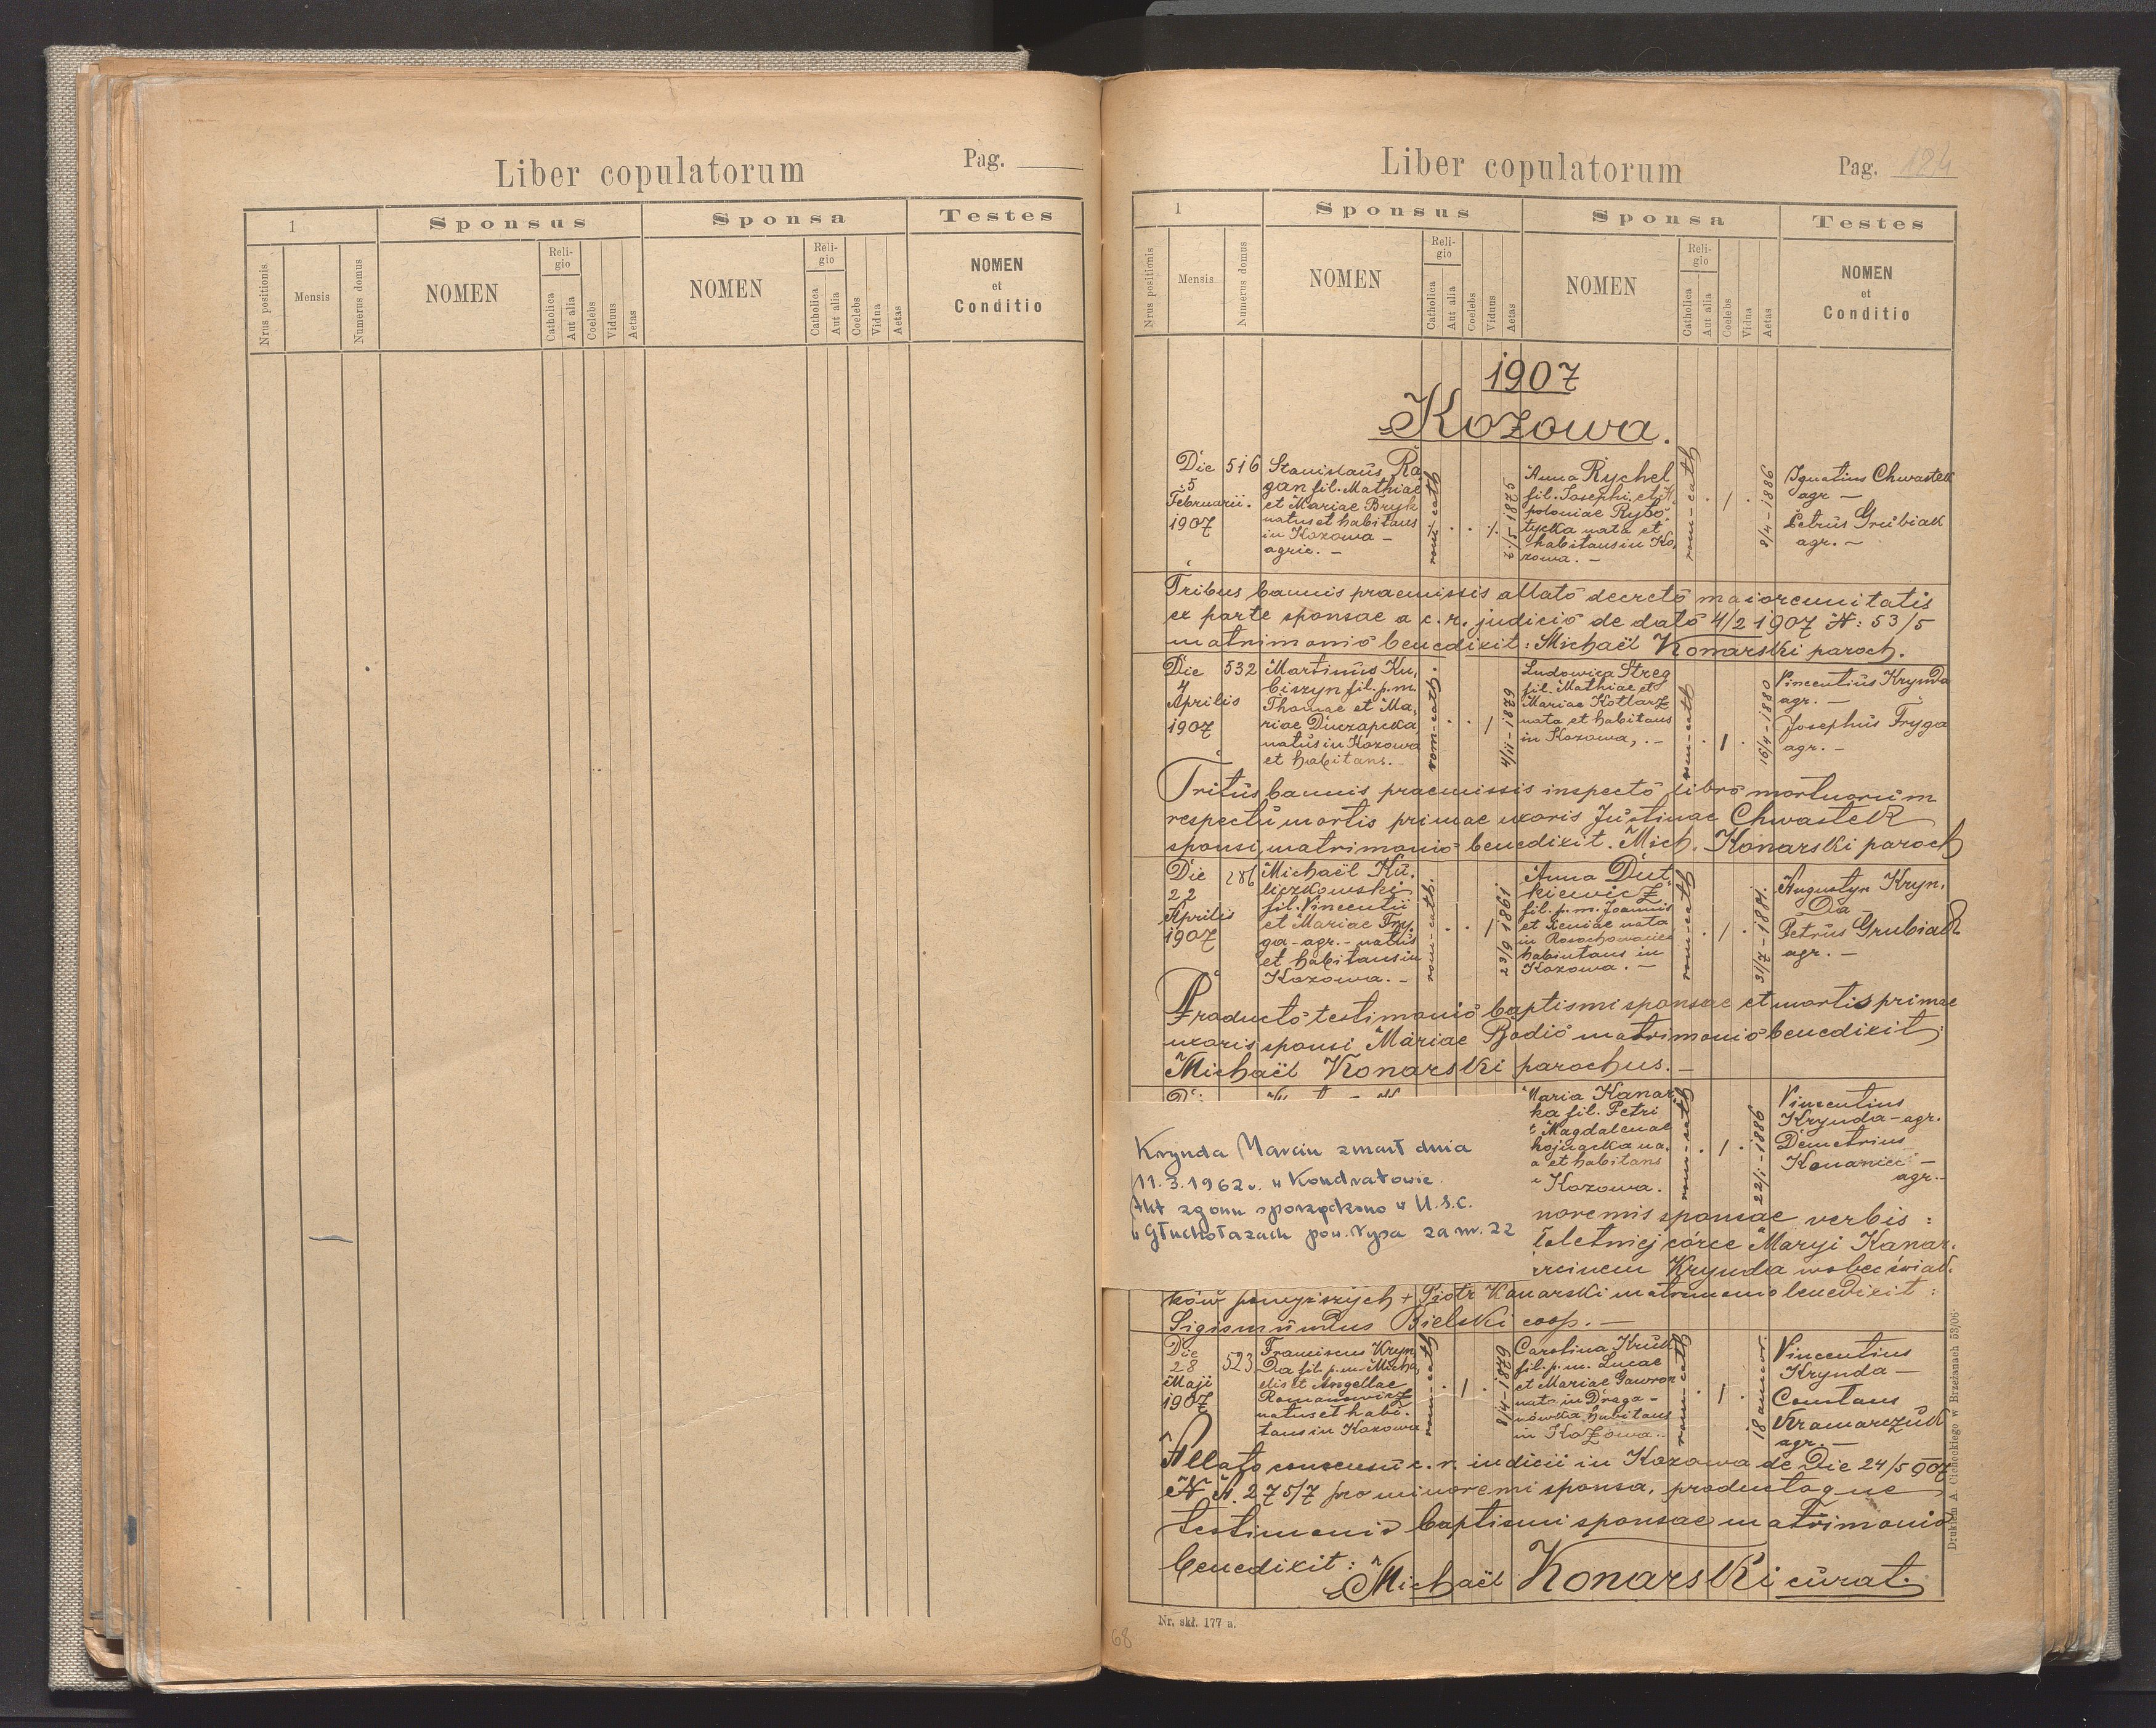 Liber copulatorum
Pag.
1
Sponsus
Sponsa
Testes
Nrus positionis
Mensis
Numerus domus
NOMEN
Religio
Catholica
Aut alia
Coelebs
Viduus
Aetas
NOMEN
Religio
Catholica
Aut alia
Coelebs
Vidua
Aetas
NOMEN
et
Conditio
Liber copulatorum
Pag. 124
1
Sponsus
Sponsa
Testes
Nrus positionis
Mensis
Numerus domus
NOMEN
Reli-
gio
Catholica
Aut alia
Coelebs
Viduus
Aetas
NOMEN
Reli-
gio
Catholica
Aut alia
Coelebs
Vidua
Aetas
NOMEN
et
Conditio
1907
Kozowa.
Die
5
Februarii.
1907
516
Stanislaus Ra
gan fil. Mathiae
et Mariae Bryk
natus et habitans
in Kozowa -
agric. -
rom cath
5-1875
Anna Rychel
fil. Josephi et A.
poloniae Rybo
tycka nata et
habitans in Ko,
zowa. -
rom-cath
1
8/4-1886
Ignatius Chwastek
agr -
Petrus Grubiak
agr. -
Tribus bannis praemissis allato decreto maiorennitatis
ex parte sponsae a c. r. judicio de dato 4/2 1907 N: 53/5
matrimonio benedixit: Michaël Konarski paroch.
Die
4
Aprilis
1907
532
Martinus Ku,
biszyn fil. p.m.
Thomae et Ma,
riae
natus in Kozowa
et habitans. -
rom-cath.
1
4/11-1879
Ludowica Streg
fil. Mathiae et
Mariae Kotlarz
nata et habitans
in Kozowa, . -
rom-cath
1
16/4-1880
Vincentius Krynda
agr. -
Josephus Fryga
agr. -
Tribus bannis praemissis inspecto libro mortuorum
respectu mortis primae uxoris Justinae Chwastek
sponsi, matrimonio benedixit. Mich. Konarski paroch
Die
22
Aprilis
1907
286
Michaël Ku.
liczkowski
fil. Vincentii
et Mariae Fry.
ga - agr. - natus
et habitans in
Kozowa. -
rom-cath.
1
23/9 1861.
Anna Dut
kiewicz
fil. p.m. Joannis
et Xeniae nata
in Rosochowaciec
habintans in
Kozowa. -
rom-cath
1
31/7-1881.
Augustyn Kryn.
Da -
Petrus Grubiak
agr. -
Producto testimonio baptismi sponsae et mortis primae
uxoris sponsi Mariae Bodio matrimonio benedixit:
Michaël Konarski parochus. -
Maria Kanar
ka fil. Petri
t Magdalenae
hojnacka na.
a et habitans
Kozowa.
rom-cath
1
22/1-1886
Vincentius
Krynda - agr.
Demetrius
Konaniec -
agr. -
Krynda Marcin zmarł dnia
11.3.1962 r. w Kondratowie.
Akt zgonu sporządzono w U.S.C.
w Głuchołazach pow. Nysa za nr. 22
norennis sponsae verbis:
łoletniej córce Maryi Kanar.
rcinem Krynda wobec świad.
ków powyższych + Piotr Kanarski matrimonio benedixit:
Sigismundus Bielski coop. -
Die
28
Maji
1907
523
Franciscus Kryn
Da fil. p.m. Micha,
elis et Angellae
Romanowicz
natus et habi.
tans in Kozowa
rom-cath
1
8/4-1879
Carolina Kruk
fil. p.m. Lucae
et Mariae Gawron
nata in Draga-
nówka habitans
in Kozowa. -
rom-cath
1
18 annor.
Vincentius
Krynda -
Constans
Kramarczuk
agr. -
Allato consensu c. r. iudicii in Kozowa de Die 24/5 907
N 275/7 pro minorenni sponsa, productoque
testimonio baptismi sponsae matrimonio
benedixit:
Michaël Konarski curat.
Nr. skł. 177 a.
Drukiem A. Cichockiego w Brzeżanach 53/06.
68